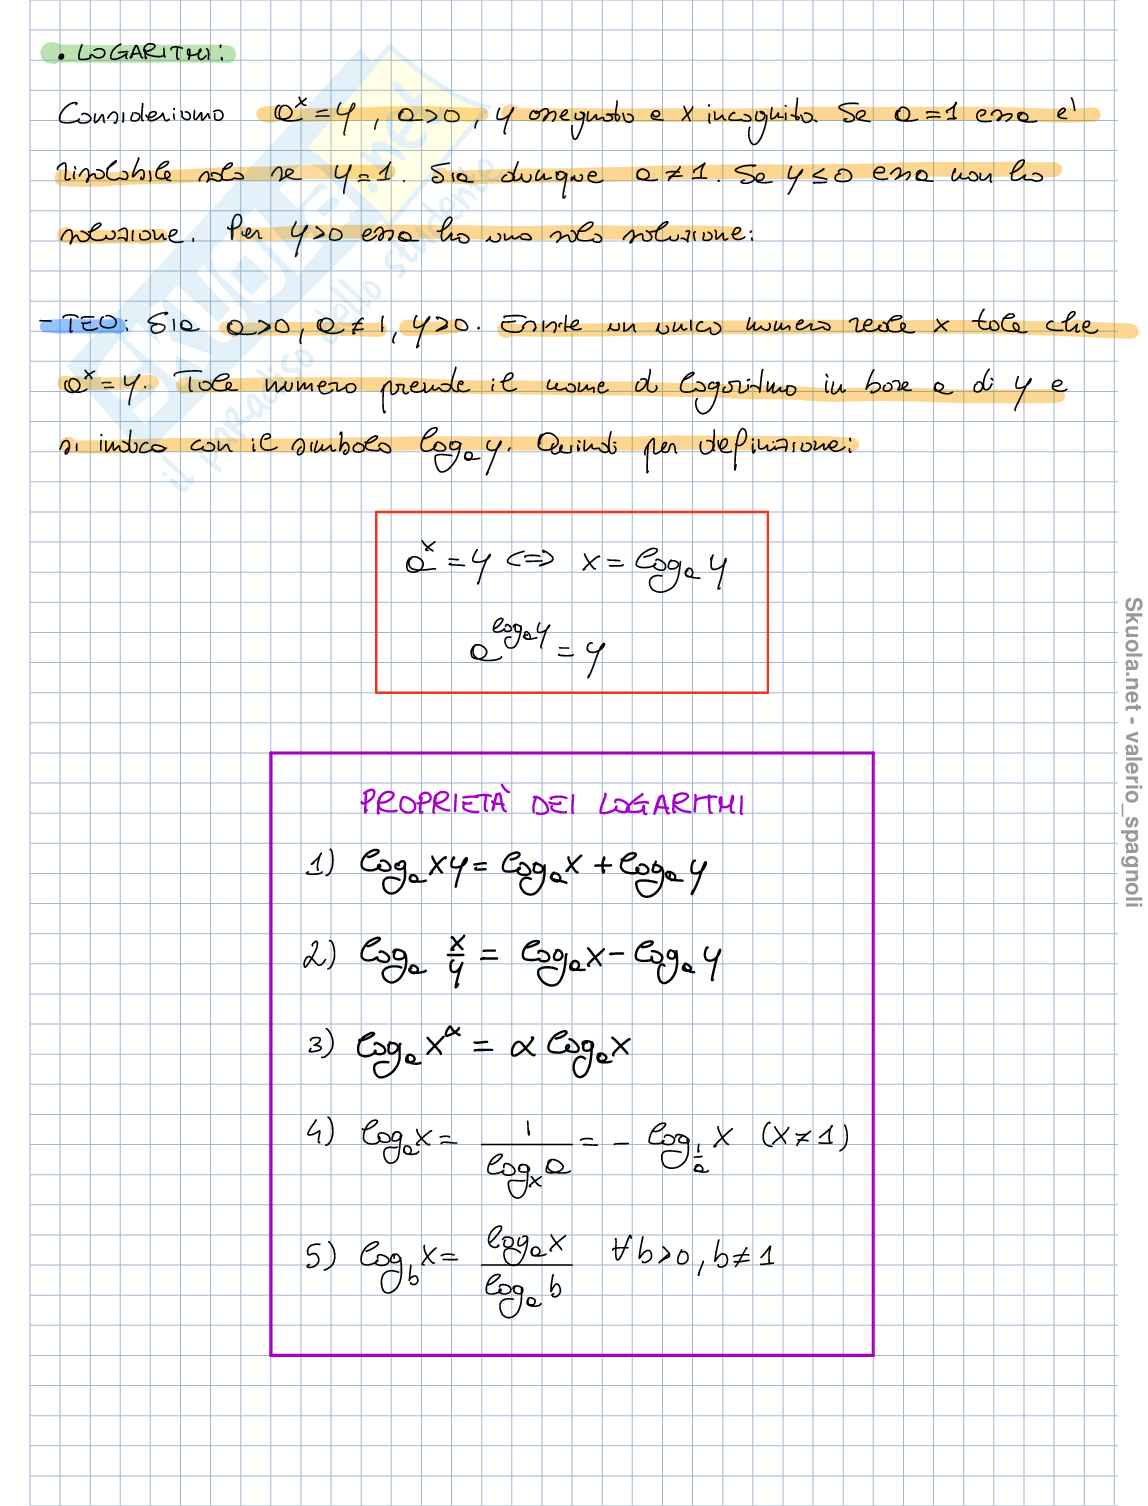 • LOGARITMI:
Consideriamo a^x = y, a>0, y assegnato e x incognita. Se a=1 essa è
risolubile solo se y=1. Sia dunque a≠1. Se y≤0 essa non ha
soluzione. Per y>0 essa ha una sola soluzione:
- TEO: Sia a>0, a≠1, y>0. Esiste un unico numero reale x tale che
a^x = y. Tale numero prende il nome di logaritmo in base a di y e
si indica con il simbolo log_a y. Quindi per definizione:
a^x = y <=> x = log_a y
a^(log_a y) = y
PROPRIETÀ DEI LOGARITMI
1) log_a xy = log_a x + log_a y
2) log_a x/y = log_a x - log_a y
3) log_a x^α = α log_a x
4) log_a x = 1/(log_x a) = - log_(1/a) x (x≠1)
5) log_b x = (log_a x)/(log_a b) ∀b>0, b≠1
SKUOLA.net
il paradiso dello studente
Skuola.net - valerio_spagnoli